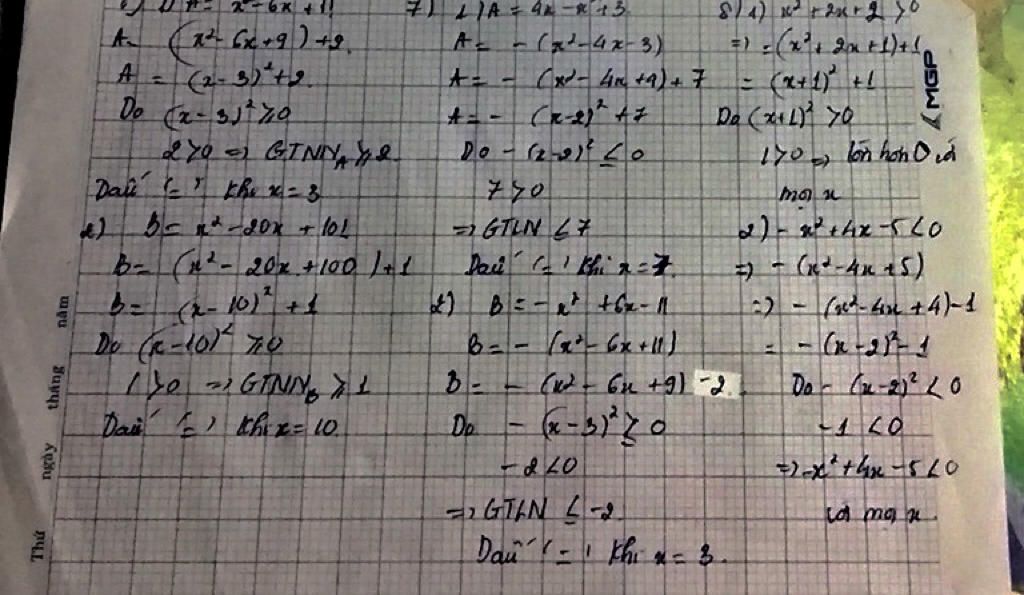 1) A = x² - 6x + 11
A = (x² - 6x + 9) + 2
A = (x - 3)² + 2.
Do (x - 3)² ≥ 0
2 > 0 => GTNN_A ≥ 2
Dấu "=" khi x = 3
2) B = x² - 20x + 101
B = (x² - 20x + 100) + 1
B = (x - 10)² + 1
Do (x - 10)² ≥ 0
1 > 0 => GTNN_B ≥ 1
Dấu "=" khi x = 10.
7) 1) A = 4x - x² + 3
A = - (x² - 4x - 3)
A = - (x² - 4x + 4) + 7
A = - (x - 2)² + 7
Do - (x - 2)² ≤ 0
7 > 0
=> GTLN ≤ 7
Dấu "=" khi x = 7.
2) B = - x² + 6x - 11
B = - (x² - 6x + 11)
B = - (x² - 6x + 9) - 2.
Do - (x - 3)² ≥ 0
- 2 < 0
=> GTLN ≤ -2
Dấu "=" khi x = 3.
8) 1) x² + 2x + 2 > 0
=> = (x² + 2x + 1) + 1
= (x + 1)² + 1
Do (x + 1)² > 0
1 > 0 => lớn hơn 0 với
mọi x
2) - x² + 4x - 5 < 0
=> - (x² - 4x + 5)
=> - (x² - 4x + 4) - 1
= - (x - 2)² - 1
Do - (x - 2)² < 0
- 1 < 0
=> -x² + 4x - 5 < 0
với mọi x
MGP
Thứ ngày tháng năm